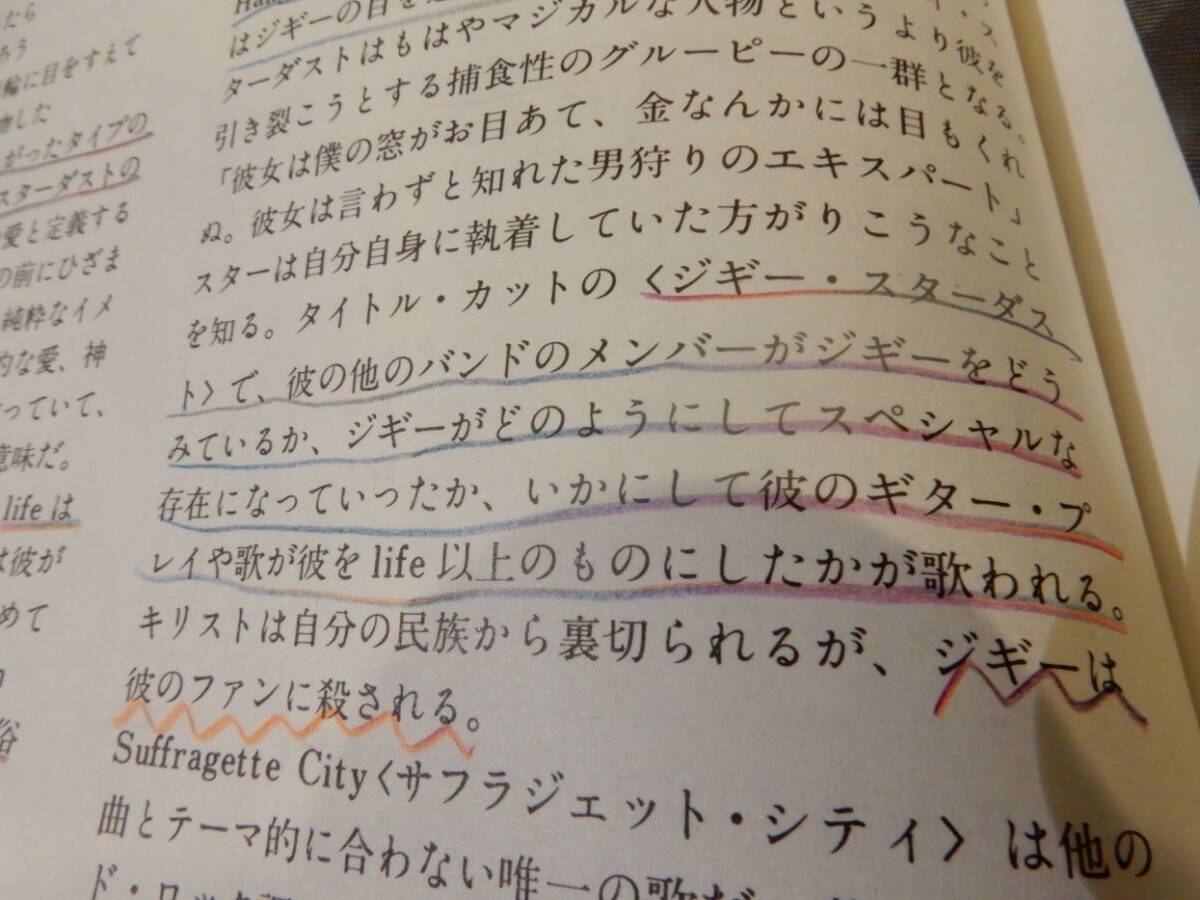 たら
ろう
輪に目をすえて
がったタイプの
スターダストの
愛と定義する
の前にひざま
純粋なイメ
的な愛、神
っていて、
意味だ。
lifeは
は彼が
めて
俗
はジギーの目を
ターダストはもはやマジカルな人物というより彼を
引き裂こうとする捕食性のグルーピーの一群となる。
「彼女は僕の窓がお目あて、金なんかには目もくれ
ぬ。彼女は言わずと知れた男狩りのエキスパート」
スターは自分自身に執着していた方がりこうなこと
を知る。タイトル・カットの〈ジギー・スターダス
ト〉で、彼の他のバンドのメンバーがジギーをどう
みているか、ジギーがどのようにしてスペシャルな
存在になっていったか、いかにして彼のギター・プ
レイや歌が彼をlife以上のものにしたかが歌われる。
キリストは自分の民族から裏切られるが、ジギーは
彼のファンに殺される。
Suffragette City〈サフラジェット・シティ〉は他の
曲とテーマ的に合わない唯一の歌だ
ド・ロック